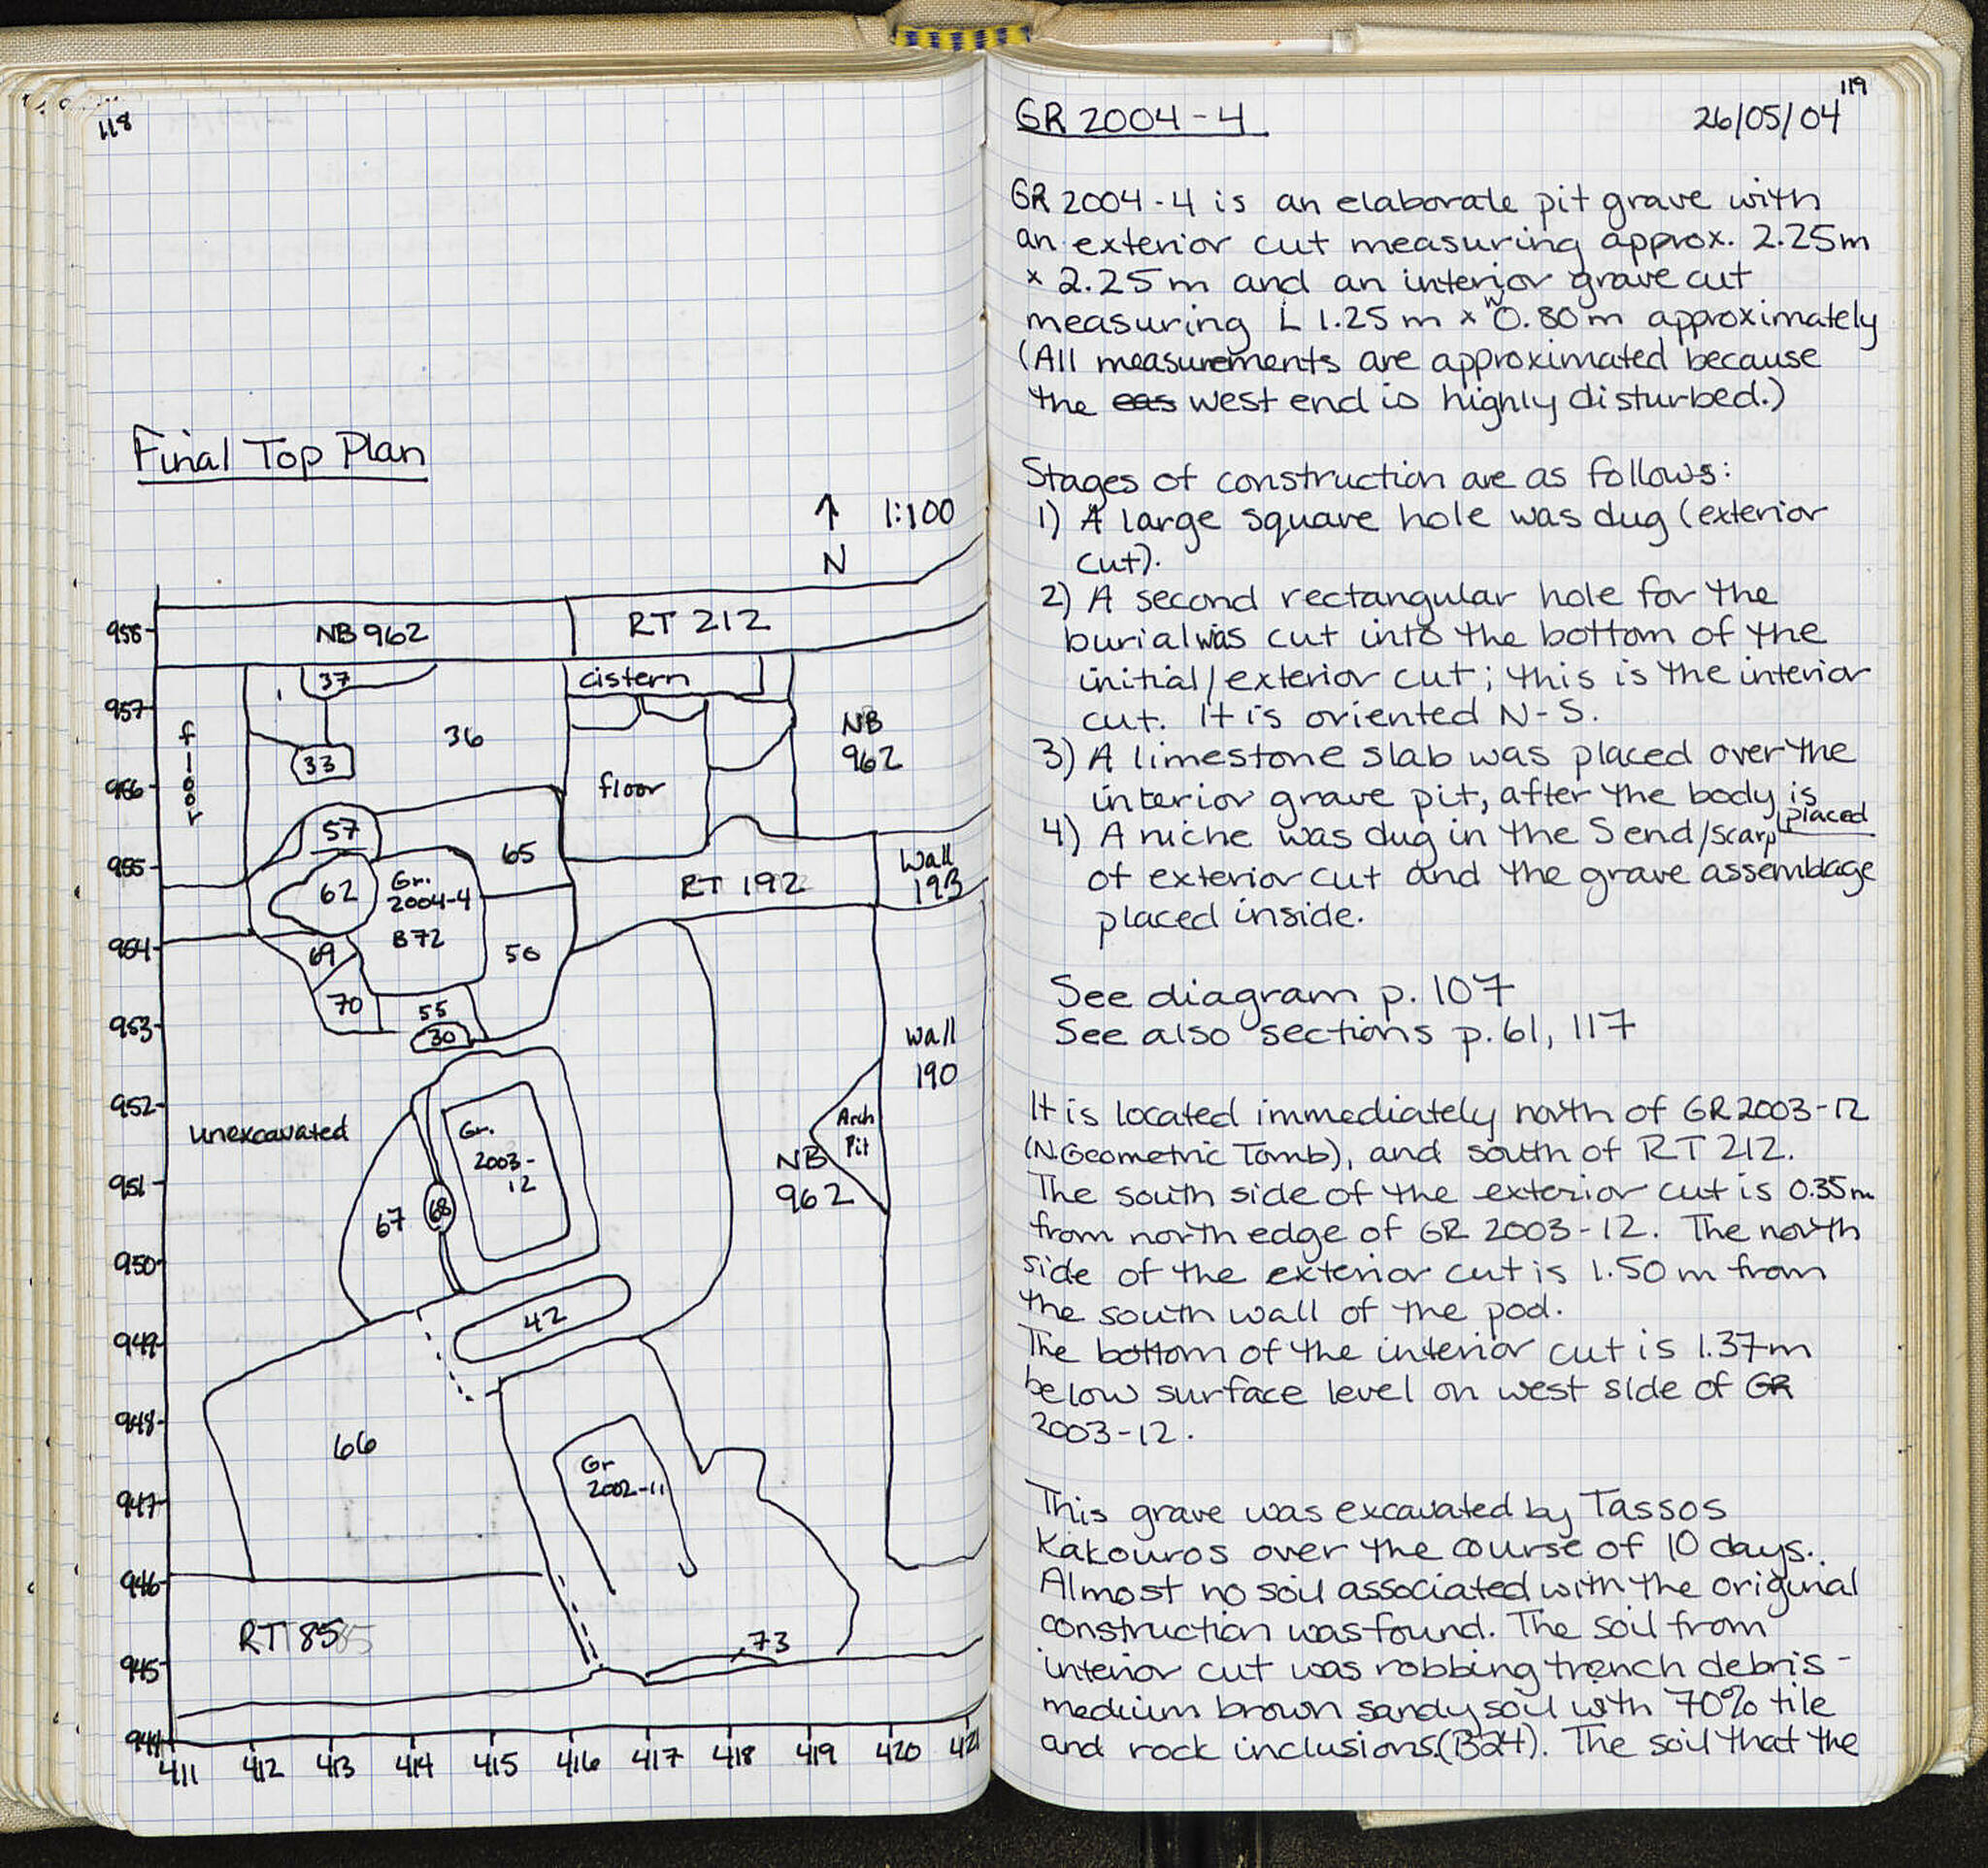 118
Final Top Plan
↑ 1:100
N
958
NB 962
RT 212
37
cistern
957
floor
36
NB
962
33
956
floor
57
65
955
Wall
193
62
Gr.
2004-4
B72
RT 192
954
69
56
70
55
953
30
Wall
190
952
unexcavated
Gr.
2003-
12
Arch
Pit
NB
962
951
67
68
950
42
949
948
66
Gr
2002-11
947
946
RT 85
73
945
944
411 412 413 414 415 416 417 418 419 420 421
119
GR 2004-4 26/05/04
GR 2004-4 is an elaborate pit grave with
an exterior cut measuring approx. 2.25m
x 2.25 m and an interior grave cut
measuring L 1.25 m x W 0.80m approximately
(All measurements are approximated because
the eas west end is highly disturbed.)
Stages of construction are as follows:
1) A large square hole was dug (exterior
cut).
2) A second rectangular hole for the
burial was cut into the bottom of the
initial/exterior cut; this is the interior
cut. It is oriented N-S.
3) A limestone slab was placed over the
interior grave pit, after the body is
placed
4) A niche was dug in the S end/scarp
of exterior cut and the grave assemblage
placed inside.
See diagram p. 107
See also sections p. 61, 117
It is located immediately north of GR 2003-12
(N. Geometric Tomb), and south of RT 212.
The south side of the exterior cut is 0.35m
from north edge of GR 2003-12. The north
side of the exterior cut is 1.50 m from
the south wall of the pod.
The bottom of the interior cut is 1.37m
below surface level on west side of GR
2003-12.
This grave was excavated by Tassos
Kakouros over the course of 10 days.
Almost no soil associated with the original
construction was found. The soil from
interior cut was robbing trench debris -
medium brown sandy soil with 70% tile
and rock inclusions (B24). The soil that the